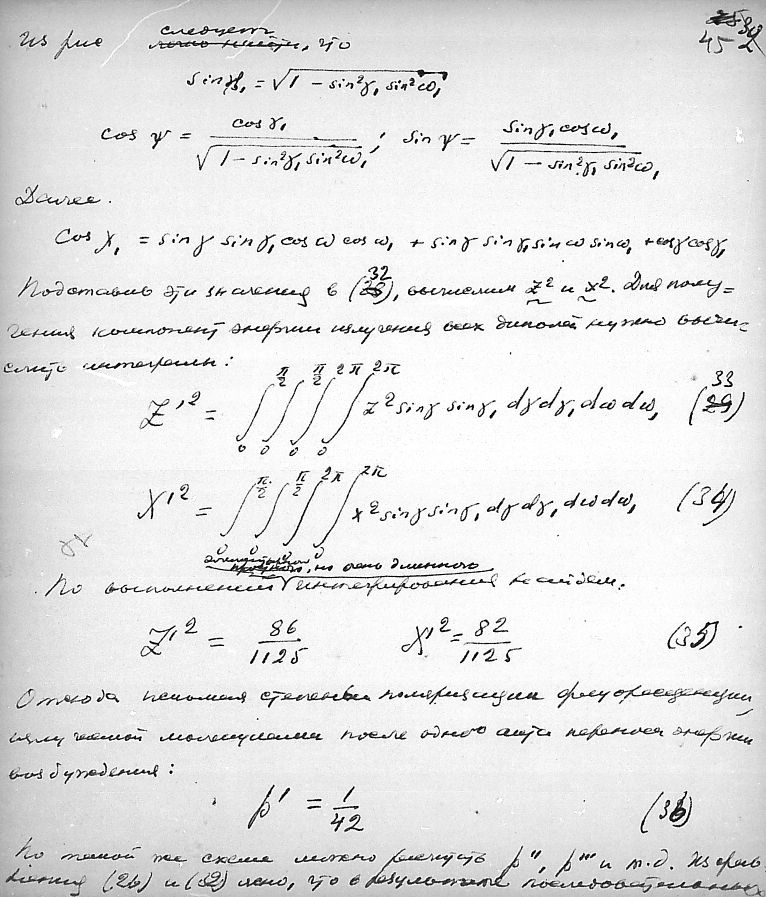 45
Из рис следует, что
sin ψ₁ = √(1 − sin²γ₁ sin²ω₁)
cos ψ = cos γ₁ / √(1 − sin²γ₁ sin²ω₁) ; sin ψ = sin γ₁ cos ω₁ / √(1 − sin²γ₁ sin²ω₁)
Далее.
Cos χ₁ = sin γ sin γ₁ cos ω cos ω₁ + sin γ sin γ₁ sin ω sin ω₁ + cos γ cos γ₁
Подставив эти значения в (32), вычислим z² и x². Для полу=
чения компонент энергии излучения всех диполей нужно вычи=
слить интегралы:
Z'² = ∫₀^{π/2} ∫₀^{π/2} ∫₀^{2π} ∫₀^{2π} z² sin γ sin γ₁ dγ dγ₁ dω dω₁ (33)
X'² = ∫₀^{π/2} ∫₀^{π/2} ∫₀^{2π} ∫₀^{2π} x² sin γ sin γ₁ dγ dγ₁ dω dω₁ (34)
но очень длинного
По выполнении интегрирования найдем.
Z'² = 86/1125 X'² = 82/1125 (35)
Отсюда степень поляризации флуоресценции,
излучаемой молекулами после одного акта переноса энергии
возбуждения:
p' = 1/42 (36)
По такой же схеме можно расчитать p'', p''' и т.д. Из срав-
нения (26) и (32) ясно, что в результате последовательных